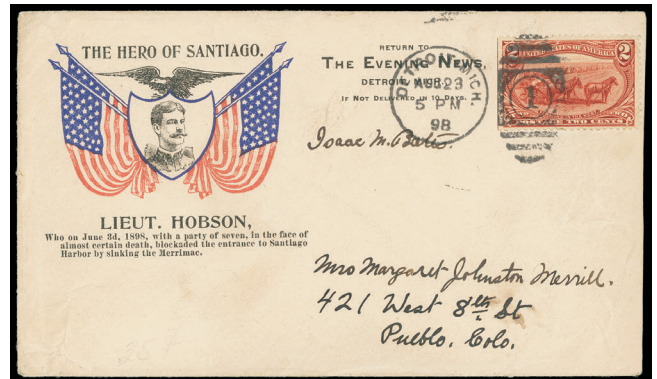 THE HERO OF SANTIAGO.
LIEUT. HOBSON,
Who on June 3d, 1898, with a party of seven, in the face of
almost certain death, blockaded the entrance to Santiago
Harbor by sinking the Merrimac.
RETURN TO
THE EVENING NEWS,
DETROIT, MICH.
IF NOT DELIVERED IN 10 DAYS.
DETROIT, MICH.
AUG 23
5 PM
98
1
UNITED STATES OF AMERICA
2
TWO CENTS
Isaac M. Bates.
Mrs Margaret Johnston Merrill.
421 West 8th St
Pueblo. Colo.